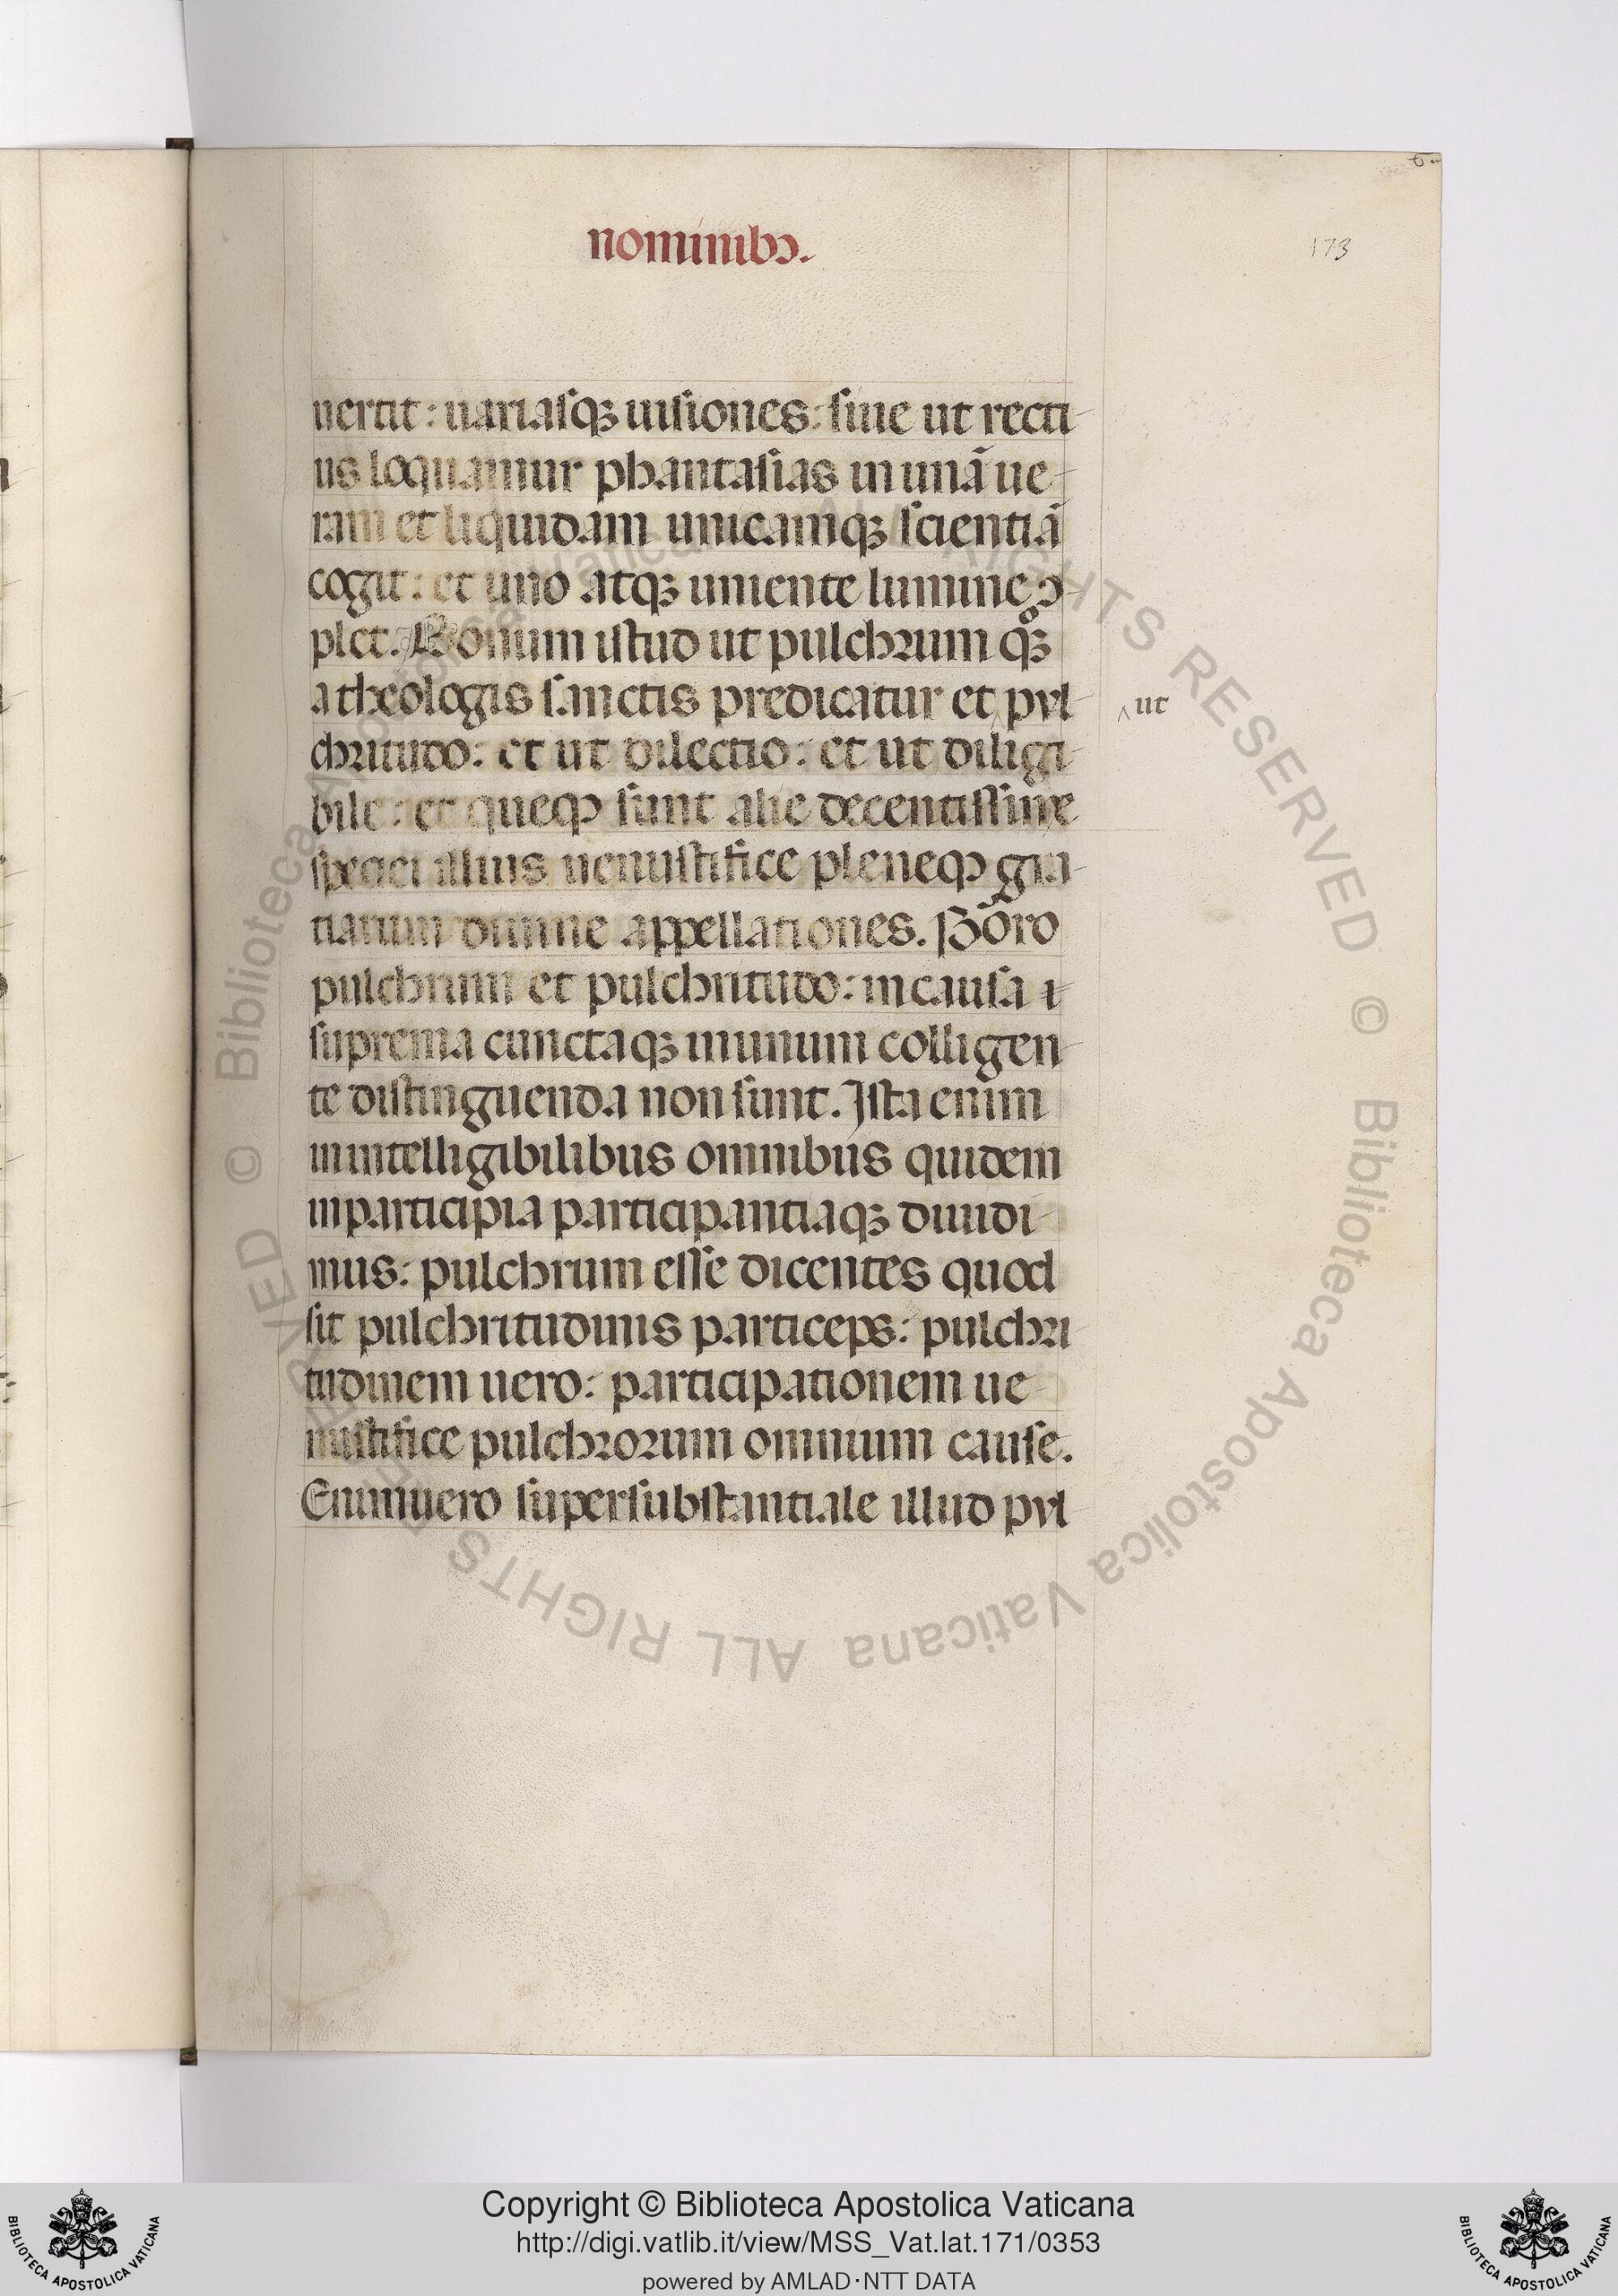 nominibꝯ.
173
uertit: uariasqꝫ uisiones: siue ut recti
us loquamur phantasias in unā ue
ram et liquidam unicamqꝫ scientiā
cogit: et uno atqꝫ uniente lumine ↄ
plet. Bonum istud ut pulchrum qͦꝫ
a theologis sanctis predicatur et pul
ut
chritudo: et ut dilectio: et ut diligi
bile: et queqꝫ sunt alie decentissime
speciei illius uenustifice pleneqꝫ gra
tiarum diuine appellationes. Porro
pulchrum et pulchritudo: in causa
suprema cunctaqꝫ inunum colligen
te distinguenda non sunt. Ista enim
in intelligibilibus omnibus quidem
in participia participantiaqꝫ diuidi
mus: pulchrum esse dicentes quod
sit pulchritudinis particeps: pulchri
tudinem uero: participationem ue
nustifice pulchrorum omnium cause.
Enimuero supersubstantiale illud pul
© Biblioteca Apostolica Vaticana ALL RIGHTS RESERVED © Biblioteca Apostolica Vaticana ALL RIGHTS RESERVED
Copyright © Biblioteca Apostolica Vaticana
http://digi.vatlib.it/view/MSS_Vat.lat.171/0353
powered by AMLAD·NTT DATA
BIBLIOTECA APOSTOLICA VATICANA
BIBLIOTECA APOSTOLICA VATICANA